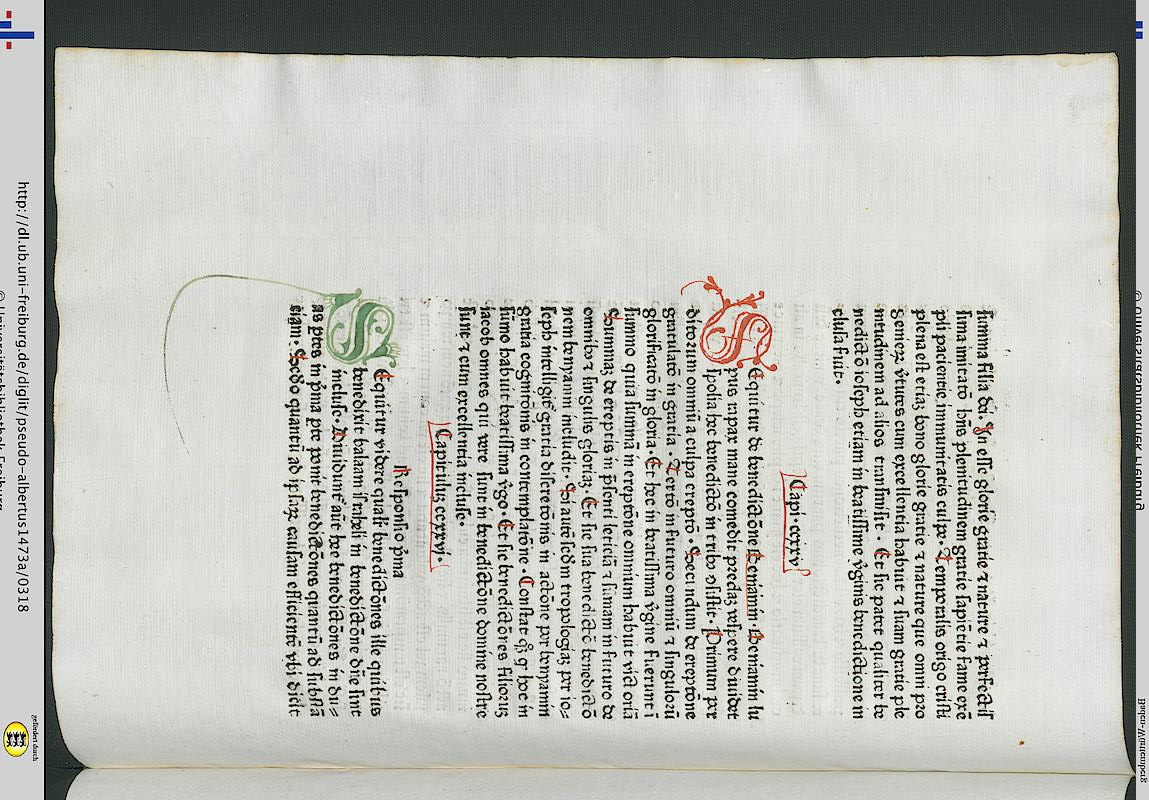 summa filia dei. In esse glorie gratie ⁊ nature ⁊ perfectiſ
sima imitatō hūs plenitudinem gratie sapiētie fame exē
pli pacientie, immunitatis culpe. Temporalis origo cristi
plena est etiaꝫ bono glorie gratie ⁊ nature que omni ꝓ
gemeꝝ v̄tutes cum excellentia habuit ⁊ suam gratie ple
nitudinem ad alios transfusit. Et sic patet qualiter be
nedictō ioseph etiam in beatissime v̄ginis benedictione in
clusa fuit.
Capi. ccxxv
Sequitur de benedictōne Beniamin. Beniamin lu
pus rapax mane comedit predaꝫ vespere diuidet
spolia hec benedictō in tribꝰ ꝯsistit. Primum per
ditorum omniū a culpa ereptō. Secundum de ereptōne
gratulatō in gratia. Tertō in futuro omniū ⁊ singulorū
glorificatō in gloria. Et hec in beatissima v̄gine fuerunt ī
summo quia summā in ereptōne omnium habuit victoriā
Summaꝫ de ereptis in pn̄senti leticiā ⁊ sumam in futuro de
omnibꝰ ⁊ singulis gloriaꝫ. Et sic sua benedictō benedictō
nem benyamin includit. Si autē scd̄m tropologiaꝫ per io-
seph intelligit̄ gratia discretōnis in actōne per benyamin
gratia cognitōnis in contemplatōne. Constat qꝫ qꝛ hoc in
sūmo habuit beatissima v̄go. Et sic benedictōnes filiorꝫ
iacob omnes qui vere sunt in benedictōne domine nostre
sunt ⁊ cum excellentia incluse.
Capituluꝫ ccxxvi.
Responsio pͥma
Sequitur videre quali benedictōnes ille quibus
benedixit balaam israheli in benedictōne dn̄e sint
incluse. Diuidunt̄ autē hee benedictōnes in du-
as ptes in pͥma pte ponit benedictōnes quantū ad substā
tiam. Scd̄o quantū ad ip̄saꝝ causam efficientē vbi dicit
http://dl.ub.uni-freiburg.de/diglit/pseudo-albertus1473a/0318
© Universitätsbibliothek Freiburg
gefördert durch